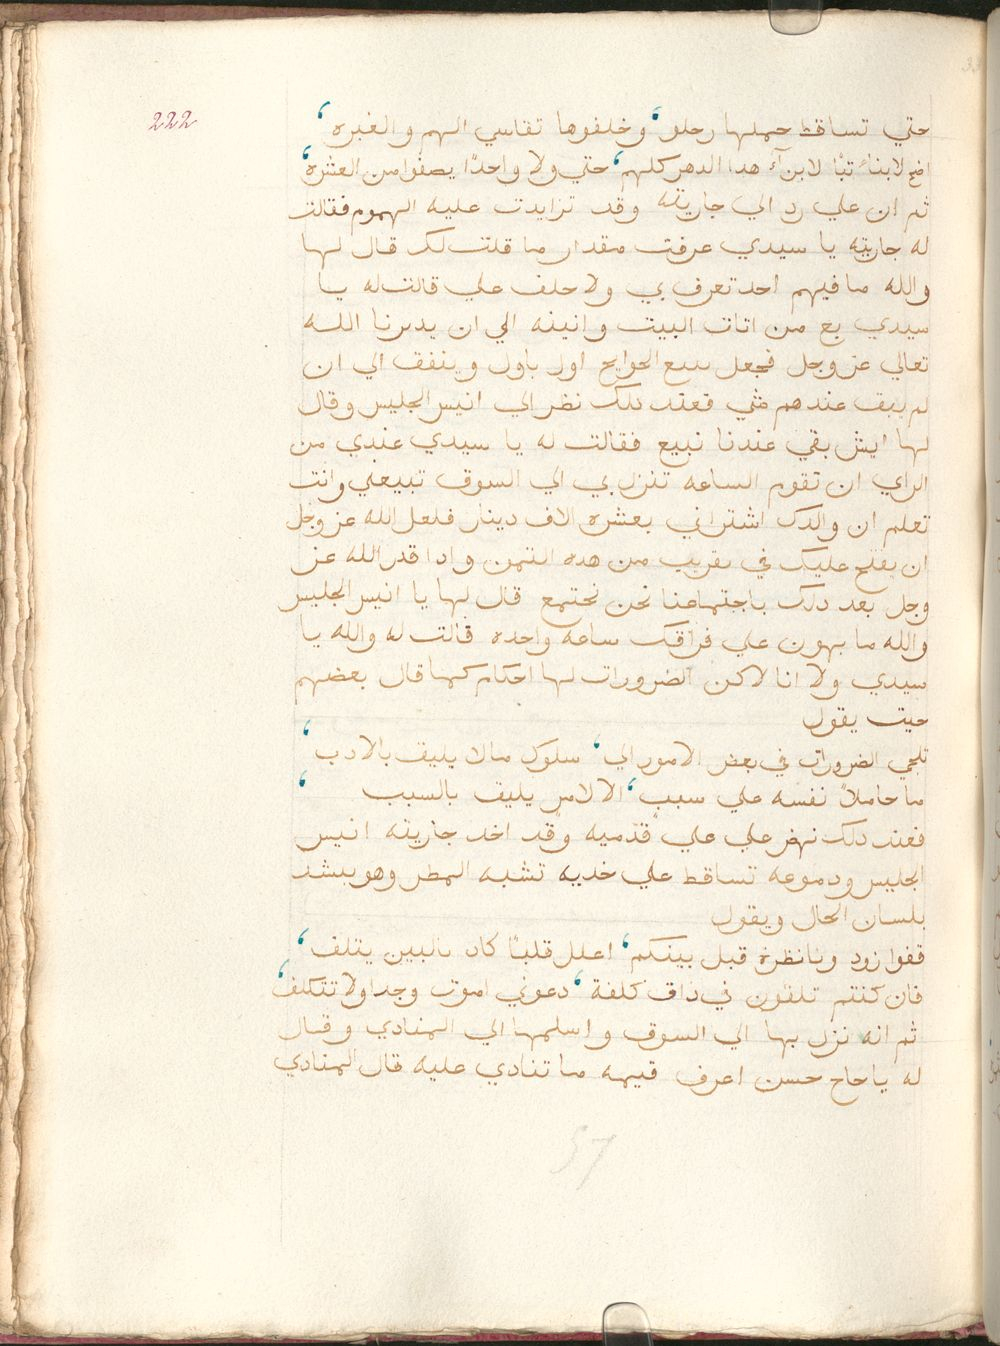 222
حتي تساقط حملها رحلو، وخلفوها تقاسي الهم والغبره،
لابناء تبًا لابنآء هدا الدهر كلهم، حتي ولا واحدًا يصفوا من العشرة،
ثم ان علي رد الي جاريته وقد تزايدت عليه الهموم فقالت
له جاريته يا سيدي عرفت مقدار ما قلت لك قال لها
والله ما فيهم احد تعرف بي ولا حلف علي قالت له يا
سيدي بع من اتات البيت وانينه الي ان يدبرنا الله
تعالي عز وجل فجعل يبيع الحوايج اول باول وينفق الي ان
لم يبق عندهم شي فعند دلك نظر الي انيس الجليس وقال
لها ايش بقي عندنا نبيع فقالت له يا سيدي عندي من
الراي ان تقوم الساعه تنزل بي الي السوق تبيعني وانت
تعلم ان والدك اشتراني بعشره الاف دينار فلعل الله عز وجل
ان يفتح عليك في بقريب من هده التمن وادا قدر الله عز
وجل بعد دلك باجتماعنا نحن نجتمع قال لها يا انيس الجليس
والله ما يهون علي فراقك ساعه واحده قالت له والله يا
سيدي ولا انا لاكن الضرورات لها احكام كما قال بعضهم
حيت يقول
تلجي الضرورات في بعض الامور الي، سلوك مالا يليق بالادب،
ما حاملاً نفسه علي سببٍ، الا لامرٍ يليق بالسبب،
فعند دلك نهض علي علي قدميه وقد اخد جاريته انيس
الجليس ودموعه تساقط علي خديه تشبه المطر وهو ينشد
بلسان الحال ويقول
قفوا زودونا نظرة قبل بينكم، اعلل قلبًا كاد بالبين يتلف،
فان كنتم تلقون في داك كلفة، دعوني اموت وجدا ولا تتكلف،
ثم انه نزل بها الي السوق واسلمها الي المنادي وقال
له يا حاج حسن اعرف قيمه ما تنادي عليه قال المنادي
57